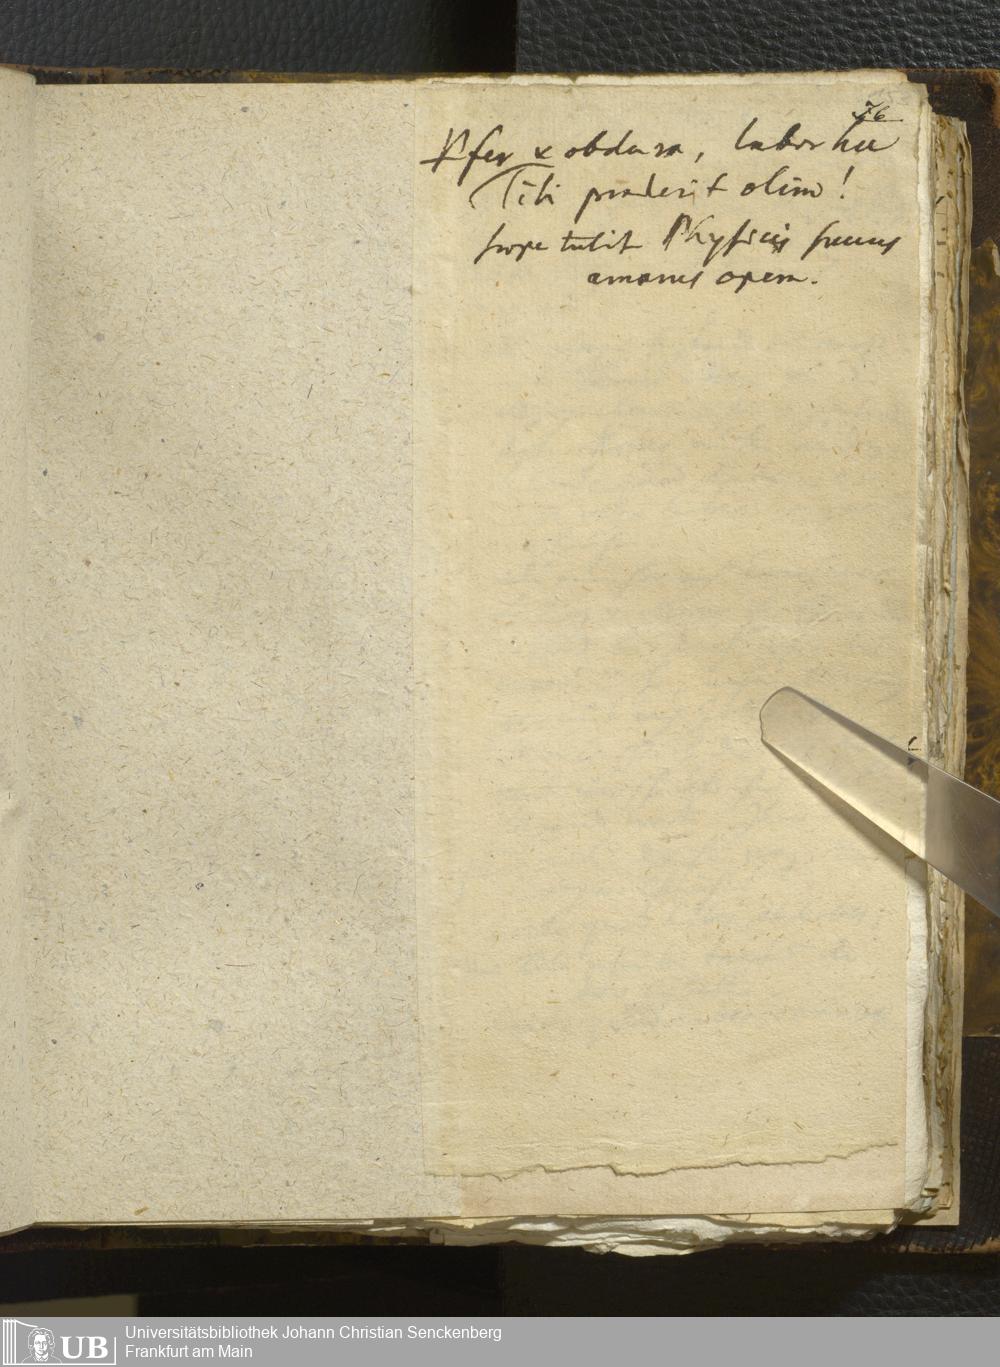 76
Pfer & obdura, labor hic
Tibi proderit olim!
saepe tulit Physicis succus
amarus opem.
UB
Universitätsbibliothek Johann Christian Senckenberg
Frankfurt am Main